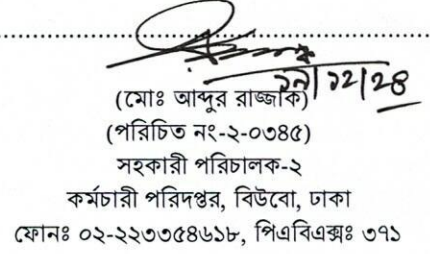 ১৭/১২/২৪
(মোঃ আব্দুর রাজ্জাক)
(পরিচিত নং-২-০৩৪৫)
সহকারী পরিচালক-২
কর্মচারী পরিদপ্তর, বিউবো, ঢাকা
ফোনঃ ০২-২২৩৩৫৪৬১৮, পিএবিএক্সঃ ৩৭১